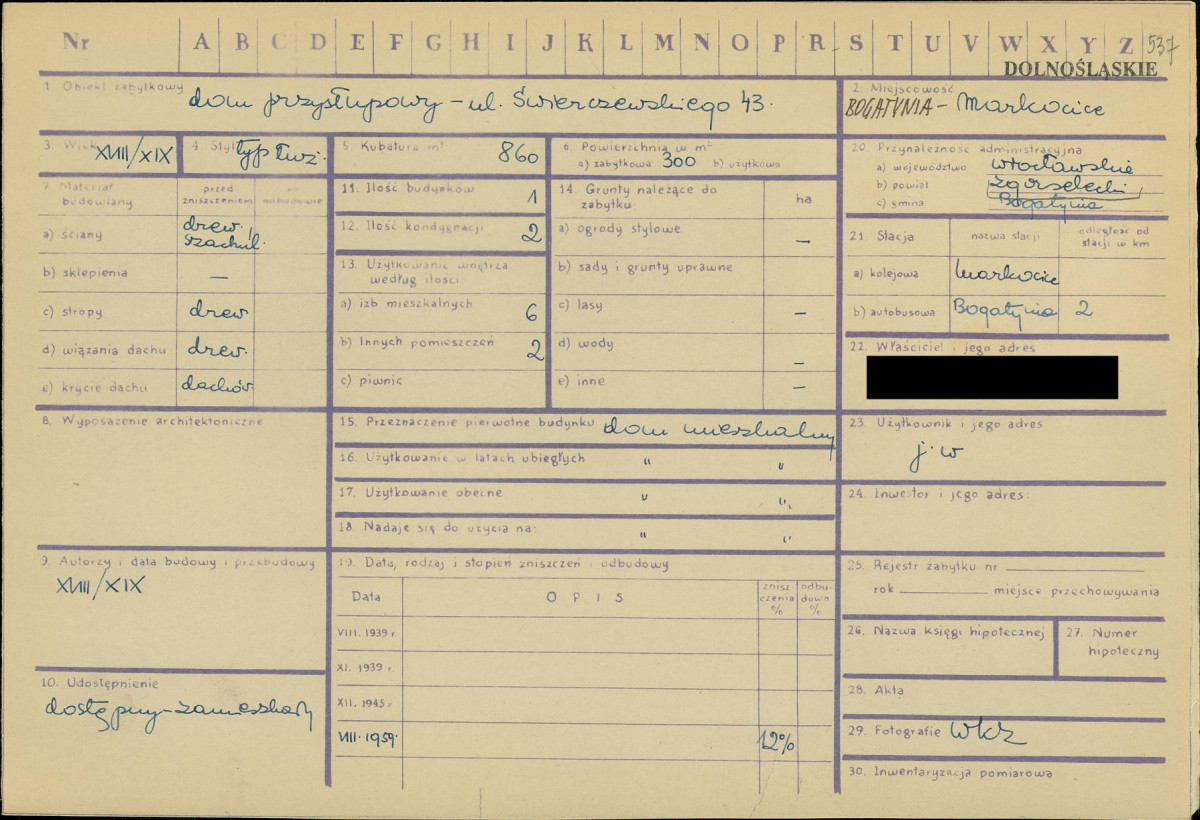 Nr A B C D E F G H I J K L M N O P R S T U V W X Y Z 537
DOLNOŚLĄSKIE
1. Obiekt zabytkowy dom przysłupowy – ul. Świerczewskiego 43.
2. Miejscowość
BOGATYNIA – Markocice
3. Wiek XVIII/XIX
4. Styl typ łuż.
5. Kubatura m³ 860
6. Powierzchnia w m²
a) zabytkowa 300 b) użytkowa
7. Materiał budowlany
przed zniszczeniem
po odbudowie
a) ściany drew., szachul.
b) sklepienia —
c) stropy drew
d) wiązania dachu drew.
e) krycie dachu dachów
8. Wyposażenie architektoniczne
9. Autorzy i data budowy i przebudowy
XVIII/XIX
10. Udostępnienie
dostępny – zamieszkały
11. Ilość budynków 1
12. Ilość kondygnacji 2
13. Użytkowanie wnętrza
według ilości:
a) izb mieszkalnych 6
b) Innych pomieszczeń 2
c) piwnic
14. Grunty należące do
zabytku: ha
a) ogrody stylowe —
b) sady i grunty uprawne
c) lasy —
d) wody —
e) inne —
15. Przeznaczenie pierwotne budynku dom mieszkalny
16. Użytkowanie w latach ubiegłych " "
17. Użytkowanie obecne " "
18. Nadaje się do użycia na: " "
19. Data, rodzaj i stopień zniszczeń i odbudowy
Data OPIS znisz-czenia % odbu-dowa %
VIII. 1939 r.
XI. 1939 r.
XII. 1945 r.
VIII. 1959. 12%
20. Przynależność administracyjna
a) województwo wrocławskie
b) powiat zgorzelecki
c) gmina Bogatynia
21. Stacja nazwa stacji odległość od stacji w km
a) kolejowa Markocice
b) autobusowa Bogatynia 2
22. Właściciel i jego adres
23. Użytkownik i jego adres
j.w
24. Inwestor i jego adres:
25. Rejestr zabytku nr
rok miejsce przechowywania
26. Nazwa księgi hipotecznej
27. Numer hipoteczny
28. Akta
29. Fotografie WKZ
30. Inwentaryzacja pomiarowa